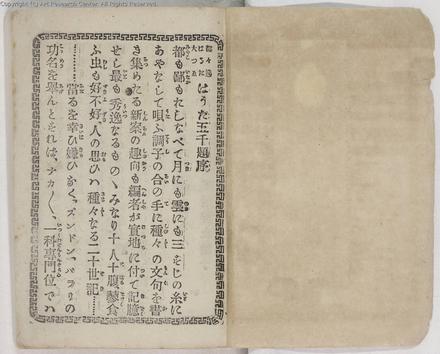 Copyright (C) Art Research Center. All Rights Reserved.
はうた五千題序
都も鄙もおしなべて月にも雲にも三すじの糸に
あやなして唄ふ調子の合の手に種々の文句を書
き集めたる新案の趣向も編者が実地に付て記憶
せし最も秀逸なるものゝみなり十人十腹蓼食
ふ虫も好不好、人の思ひハ種々なる二十世記……
……当るを幸ひ嫌ひなくズンドンバラリの
功名を挙んとすれば、ナカ〳〵、一科専門位でハ